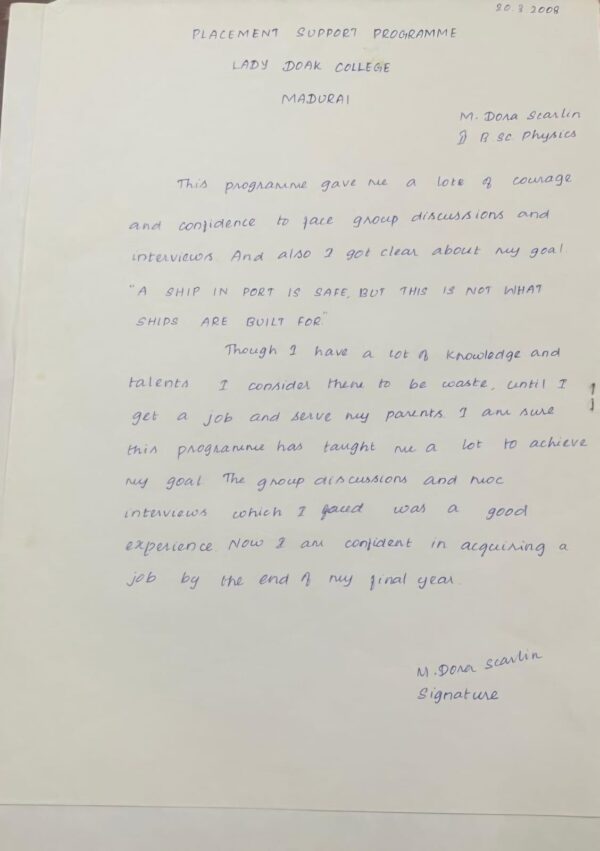 20.3.2008
PLACEMENT SUPPORT PROGRAMME
LADY DOAK COLLEGE
MADURAI
M. Dora Scarlin
II B.Sc. Physics
This programme gave me a lote of courage
and confidence to face group discussions and
interviews. And also I got clear about my goal.
"A SHIP IN PORT IS SAFE, BUT THIS IS NOT WHAT
SHIPS ARE BUILT FOR."
Though I have a lot of knowledge and
talents I consider them to be waste, until I
get a job and serve my parents. I am sure
this programme has taught me a lot to achieve
my goal. The group discussions and moc
interviews which I faced was a good
experience. Now I am confident in acquiring a
job by the end of my final year.
M. Dora Scarlin
Signature